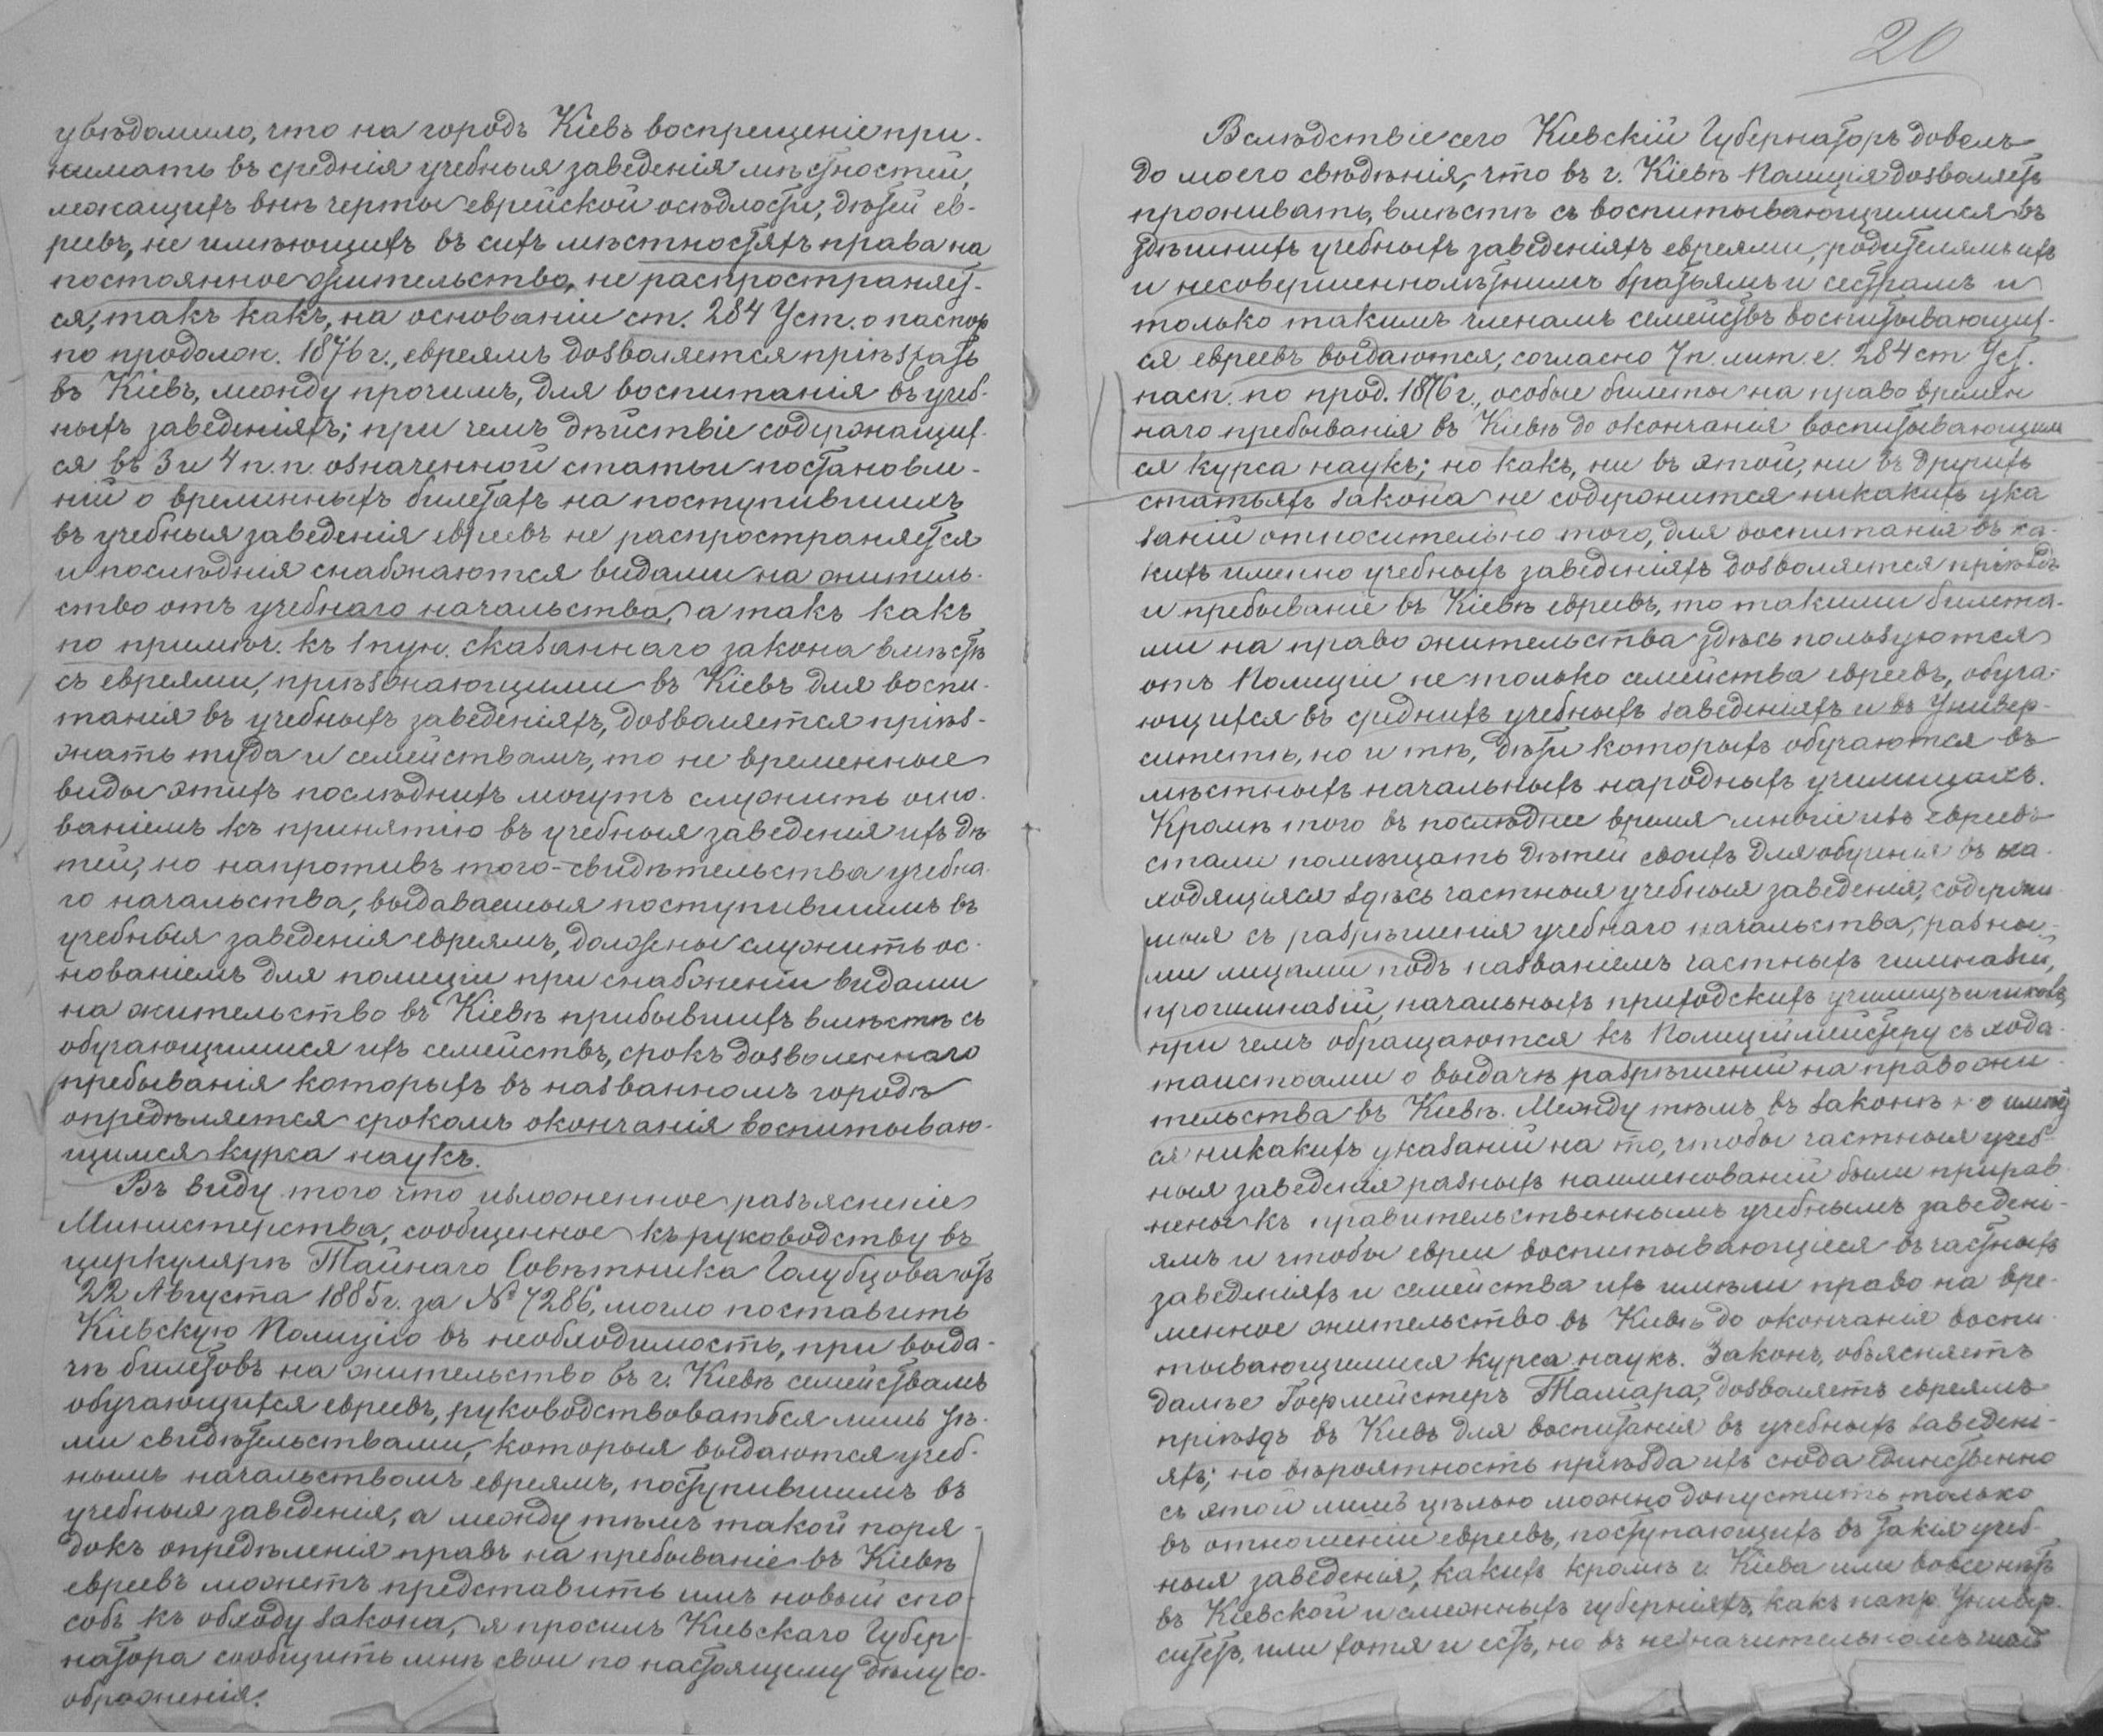 увѣдомило, что на городъ Кіевъ воспрещеніе при-
нимать въ среднія учебныя заведенія мѣстностей,
лежащихъ внѣ черты еврейской осѣдлости, дѣтей ев-
реевъ, не имѣющихъ въ сихъ мѣстностяхъ права на
постоянное жительство, не распространяет-
ся, такъ какъ, на основаніи ст. 284 Уст. о паспор
по продолж. 1876 г., евреямъ дозволяется пріѣзжать
въ Кіевъ, между прочимъ, для воспитанія въ учеб-
ныхъ заведеніяхъ; при чемъ дѣйствіе содержащих-
ся въ 3 и 4 п.п. означенной статьи постановле-
ній о временныхъ билетахъ на поступившихъ
въ учебныя заведенія евреевъ не распространяется
и послѣднія снабжаются видами на житель-
ство отъ учебнаго начальства, а такъ какъ
по примѣч. къ 1 пун. сказаннаго закона вмѣстѣ
съ евреями, пріѣзжающими въ Кіевъ для воспи-
танія въ учебныхъ заведеніяхъ, дозволяется пріѣз-
жать туда и семействамъ, то не временные
виды этихъ послѣднихъ могутъ служить осно-
ваніемъ къ принятію въ учебныя заведенія ихъ дѣ
тей, но напротивъ того - свидѣтельства учебна-
го начальства, выдаваемыя поступившимъ въ
учебныя заведенія евреямъ, должны служить ос-
нованіемъ для полиціи при снабженіи видами
на жительство въ Кіевѣ прибывшихъ вмѣстѣ съ
обучающимися ихъ семействъ, срокъ дозволеннаго
пребыванія которыхъ въ названномъ городѣ
опредѣляется срокомъ окончанія воспитываю-
щимся курса наукъ.
Въ виду того что изложенное разъясненіе
Министерства, сообщенное къ руководству въ
циркулярѣ Тайнаго Совѣтника Голубцова отъ
22 Августа 1885 г. за № 7286, могло поставить
Кіевскую Полицію въ необходимость, при выда-
чѣ билетовъ на жительство въ г. Кіевѣ семействамъ
обучающихся евреевъ, руководствоваться лишь тѣ-
ми свидѣтельствами, которыя выдаются учеб-
нымъ начальствомъ евреямъ, поступившимъ въ
учебныя заведенія, а между тѣмъ такой поря-
докъ опредѣленія правъ на пребываніе въ Кіевѣ
евреевъ можетъ представить имъ новый спо-
собъ къ обходу закона, я просилъ Кіевскаго Губер-
натора сообщить мнѣ свои по настоящему дѣлу со-
ображенія.
20
Вслѣдствіе сего Кіевскій Губернаторъ довелъ
до моего свѣдѣнія, что въ г. Кіевѣ Полиція дозволяетъ
проживать, вмѣстѣ съ воспитывающимися въ
здѣшнихъ учебныхъ заведеніяхъ евреями, родителямъ ихъ
и несовершеннолѣтнимъ братьямъ и сестрамъ и
только такимъ членамъ семействъ воспитывающих-
ся евреевъ выдаются, согласно 7 п. лит. е. 284 ст Уст.
насп. по прод. 1876 г., особые билеты на право времен
наго пребыванія въ Кіевѣ до окончанія воспитывающим
ся курса наукъ; но какъ, ни въ этой, ни въ другихъ
статьяхъ закона не содержится никакихъ ука
заній относительно того, для воспитанія въ ка-
кихъ именно учебныхъ заведеніяхъ дозволяется пріѣздъ
и пребываніе въ Кіевѣ евреевъ, то такими билета-
ми на право жительства здѣсь пользуются
отъ Полиціи не только семейства евреевъ, обуча-
ющихся въ среднихъ учебныхъ заведеніяхъ и въ Универ-
ситетѣ, но и тѣ, дѣти которыхъ обучаются въ
мѣстныхъ начальныхъ народныхъ училищахъ.
Кромѣ того въ послѣднее время многіе изъ евреевъ
стали помѣщать дѣтей своихъ для обученія въ на-
ходящіяся здѣсь частныя учебныя заведенія, содержи-
мыя съ разрѣшенія учебнаго начальства, разны-
ми лицами подъ названіемъ частныхъ гимназій,
прогимназій, начальныхъ приходскихъ училищъ и школъ,
при чемъ обращаются къ Полиціймейстеру съ хода-
тайствами о выдачѣ разрѣшеній на право жи-
тельства въ Кіевѣ. Между тѣмъ въ законѣ не имѣет
ся никакихъ указаній на то, чтобы частныя учеб-
ныя заведенія разныхъ наименованій были прирав-
нены къ правительственнымъ учебнымъ заведені-
ямъ и чтобы евреи воспитывающіеся въ частныхъ
заведеніяхъ и семейства ихъ имѣли право на вре-
менное жительство въ Кіевѣ до окончанія воспи-
тывающимися курса наукъ. Законъ, объясняетъ
далѣе Гофмейстеръ Тамара, дозволяетъ евреямъ
пріѣздъ въ Кіевъ для воспитанія въ учебныхъ заведені-
яхъ; но вѣроятность пріѣзда ихъ сюда единственно
съ этой лишь цѣлью можно допустить только
въ отношеніи евреевъ, поступающихъ въ такія учеб-
ныя заведенія, какихъ кромѣ г. Кіева или вовсе нѣтъ
въ Кіевской и смежныхъ губерніяхъ, какъ напр. Универ-
ситетъ, или хотя и есть, но въ незначительномъ числѣ